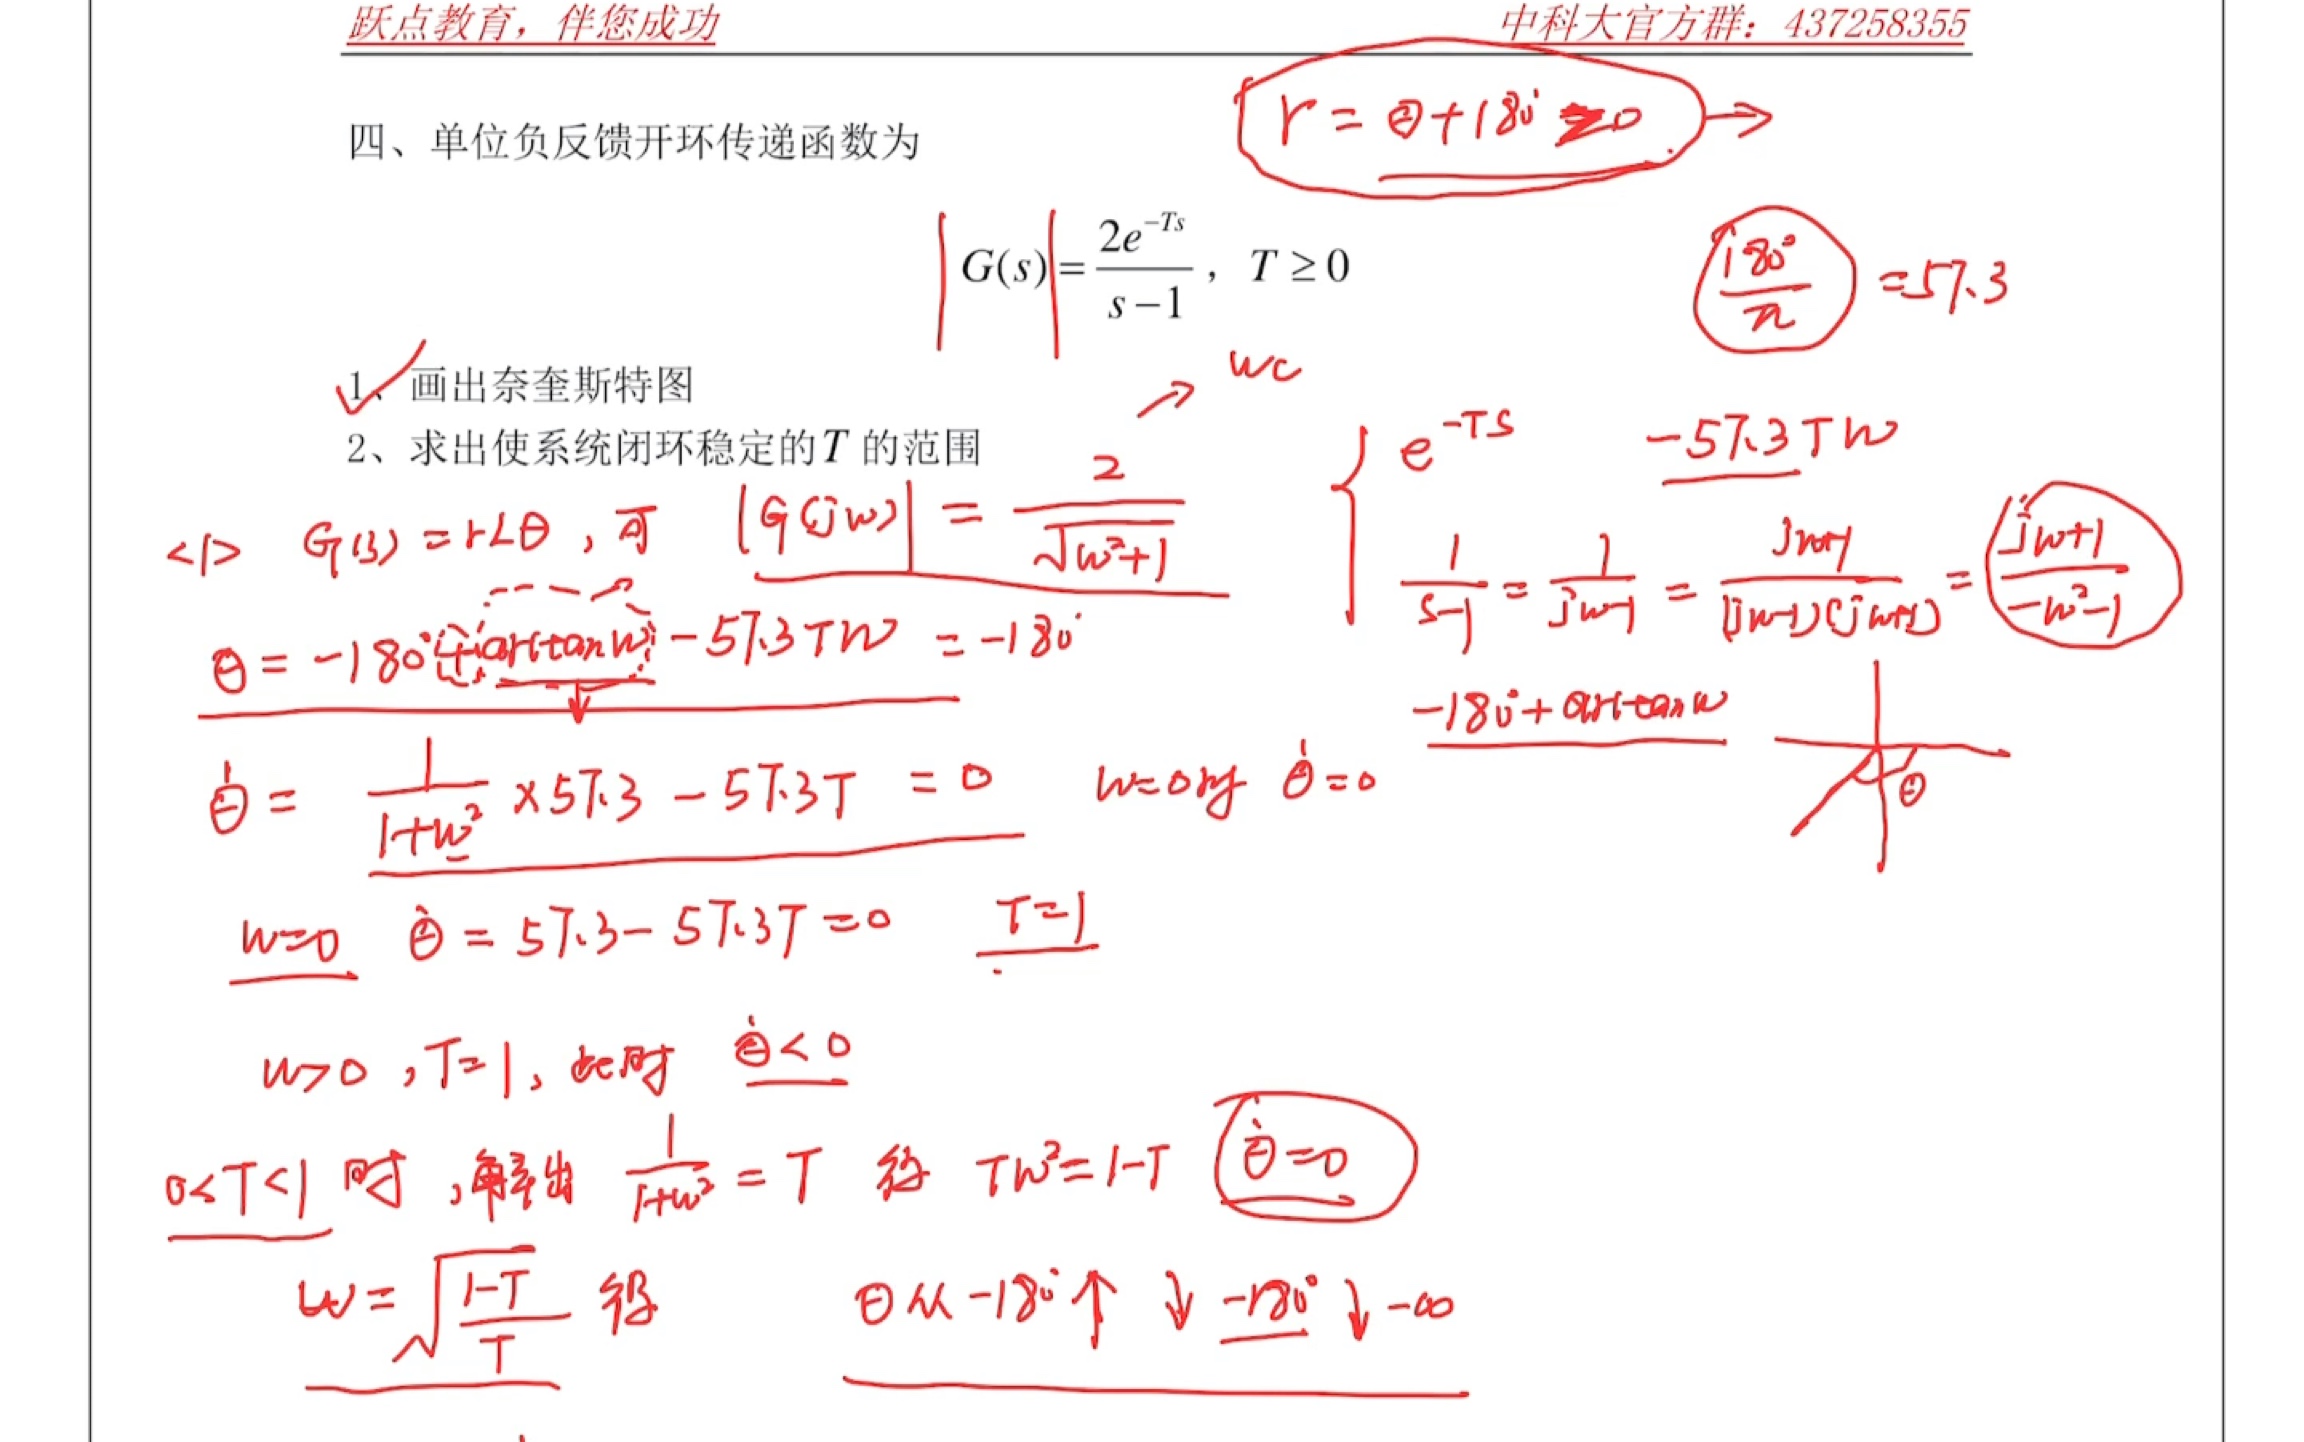 跃点教育，伴您成功 中科大官方群：437258355
r = θ+180° ≥0 →
四、单位负反馈开环传递函数为
|G(s)| = 2e^{-Ts}/(s-1)，T ≥ 0
180°/π =57.3
1、画出奈奎斯特图
→ wc
2、求出使系统闭环稳定的T 的范围
e^{-TS} -57.3TW
<1> G(s) = r∠θ，可 |G(jw)| = 2/√(w²+1)
1/(s-1) = 1/(jw-1) = (jw+1)/((jw-1)(jw+1)) = (jw+1)/(-w²-1)
θ = -180°+arctanw -57.3TW = -180°
-180°+arctanw
θ
θ̇ = 1/(1+w²) ×57.3 -57.3T = 0 w=0时 θ̇=0
w=0 θ̇ = 57.3-57.3T=0 T=1
w>0，T=1，此时 θ̇<0
0<T<1时，解出 1/(1+w²) = T 得 TW²=1-T θ̇=0
w=√((1-T)/T) 得 θ从-180°↑ ↓ -180°↓-∞